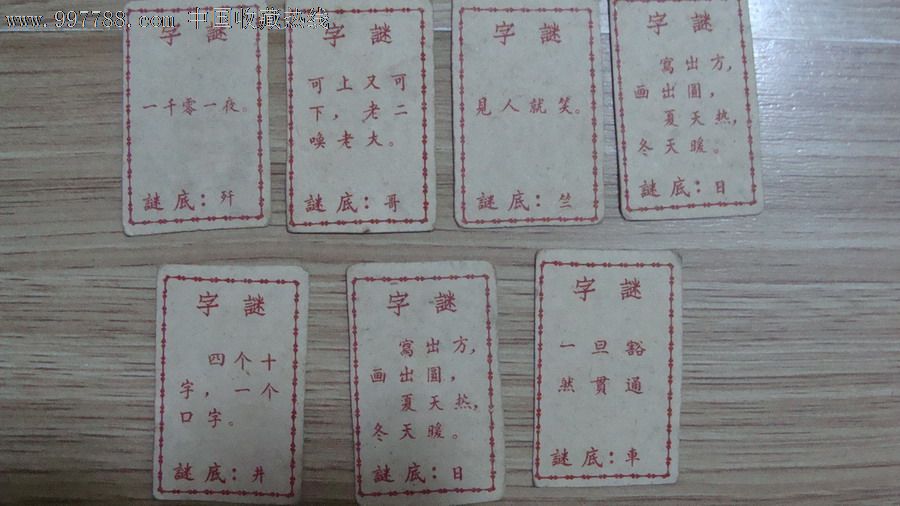 www.997788.com 中国收藏热线
字謎
一千零一夜。
謎底：歼
字謎
可上又可
下，老二
喚老大。
謎底：哥
字謎
見人就笑。
謎底：竺
字謎
寫出方，
画出圓，
夏天热，
冬天暖。
謎底：日
字謎
四个十
字，一个
口字。
謎底：井
字謎
寫出方，
画出圓，
夏天热，
冬天暖。
謎底：日
字謎
一旦豁
然貫通
謎底：車